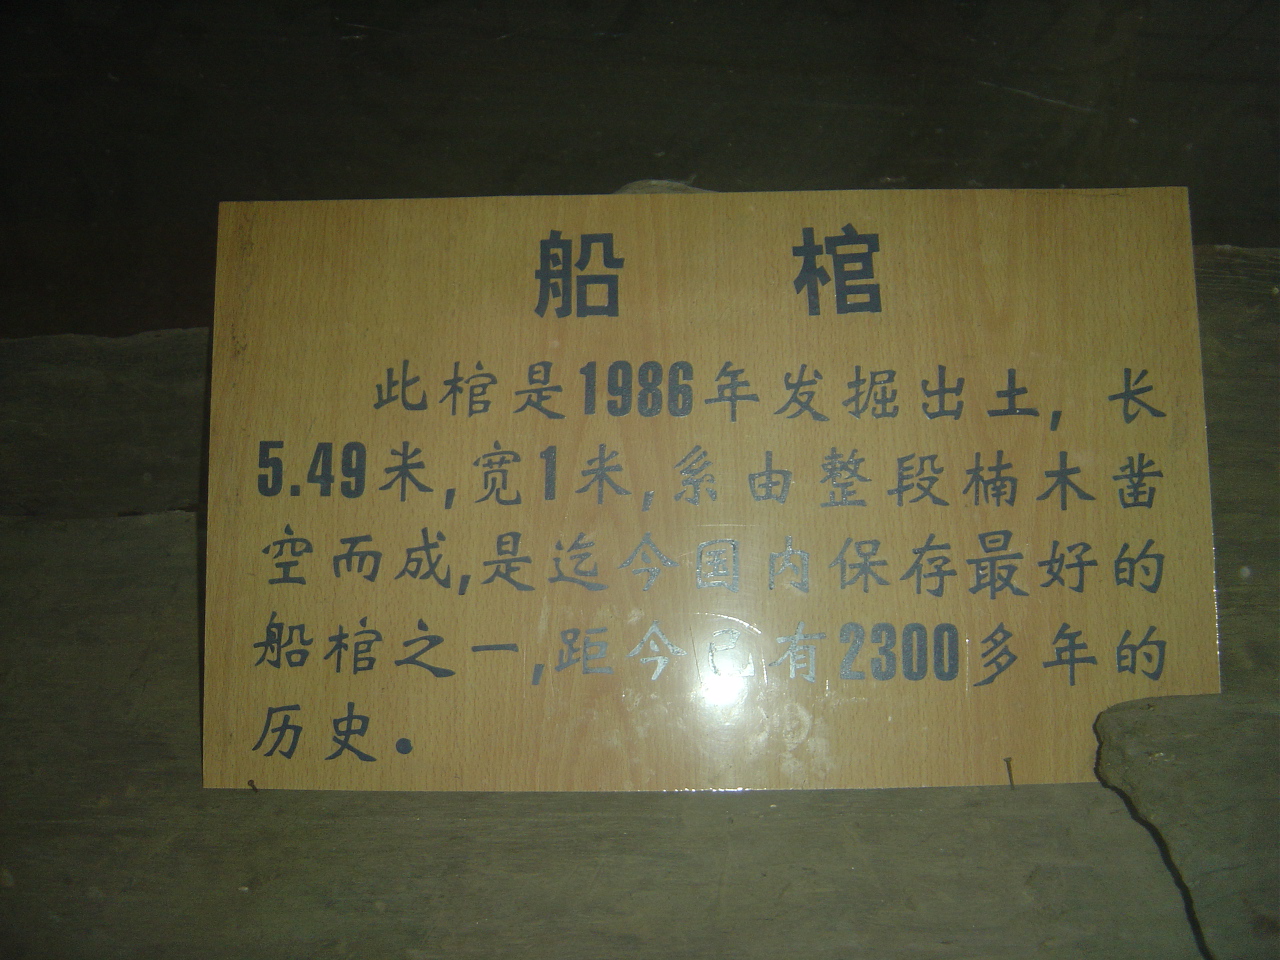 船 棺
此棺是1986年发掘出土,长
5.49米,宽1米,系由整段楠木凿
空而成,是迄今国内保存最好的
船棺之一,距今已有2300多年的
历史.